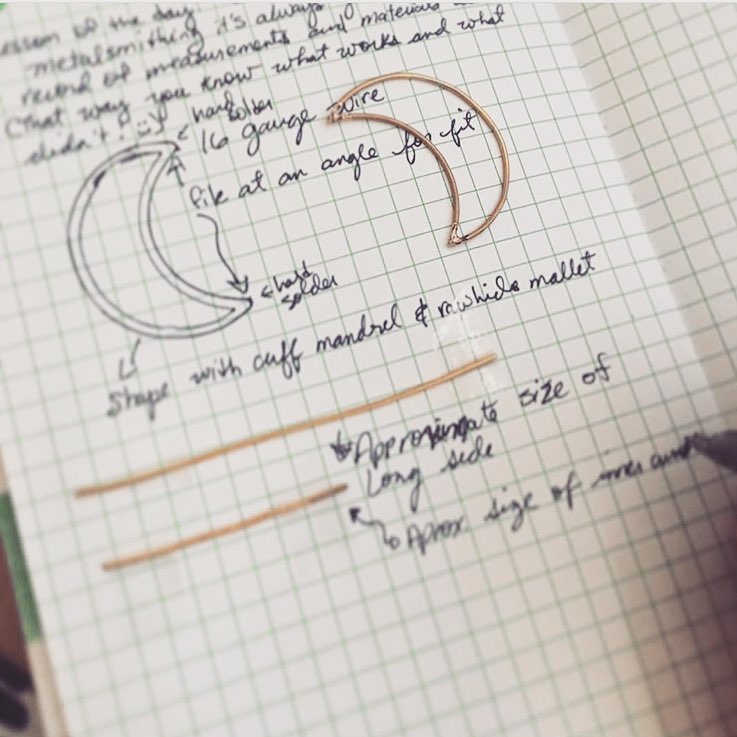 esson of the day:
metalsmithing it's always
record of measurements and materials
(that way you know what works and what
didn't! :)
< hard
solder
16 gauge wire
file at an angle for fit
< hard
solder
Shape with cuff mandrel & rawhide mallet
Approximate size of
Long side
Aprox. size of inner